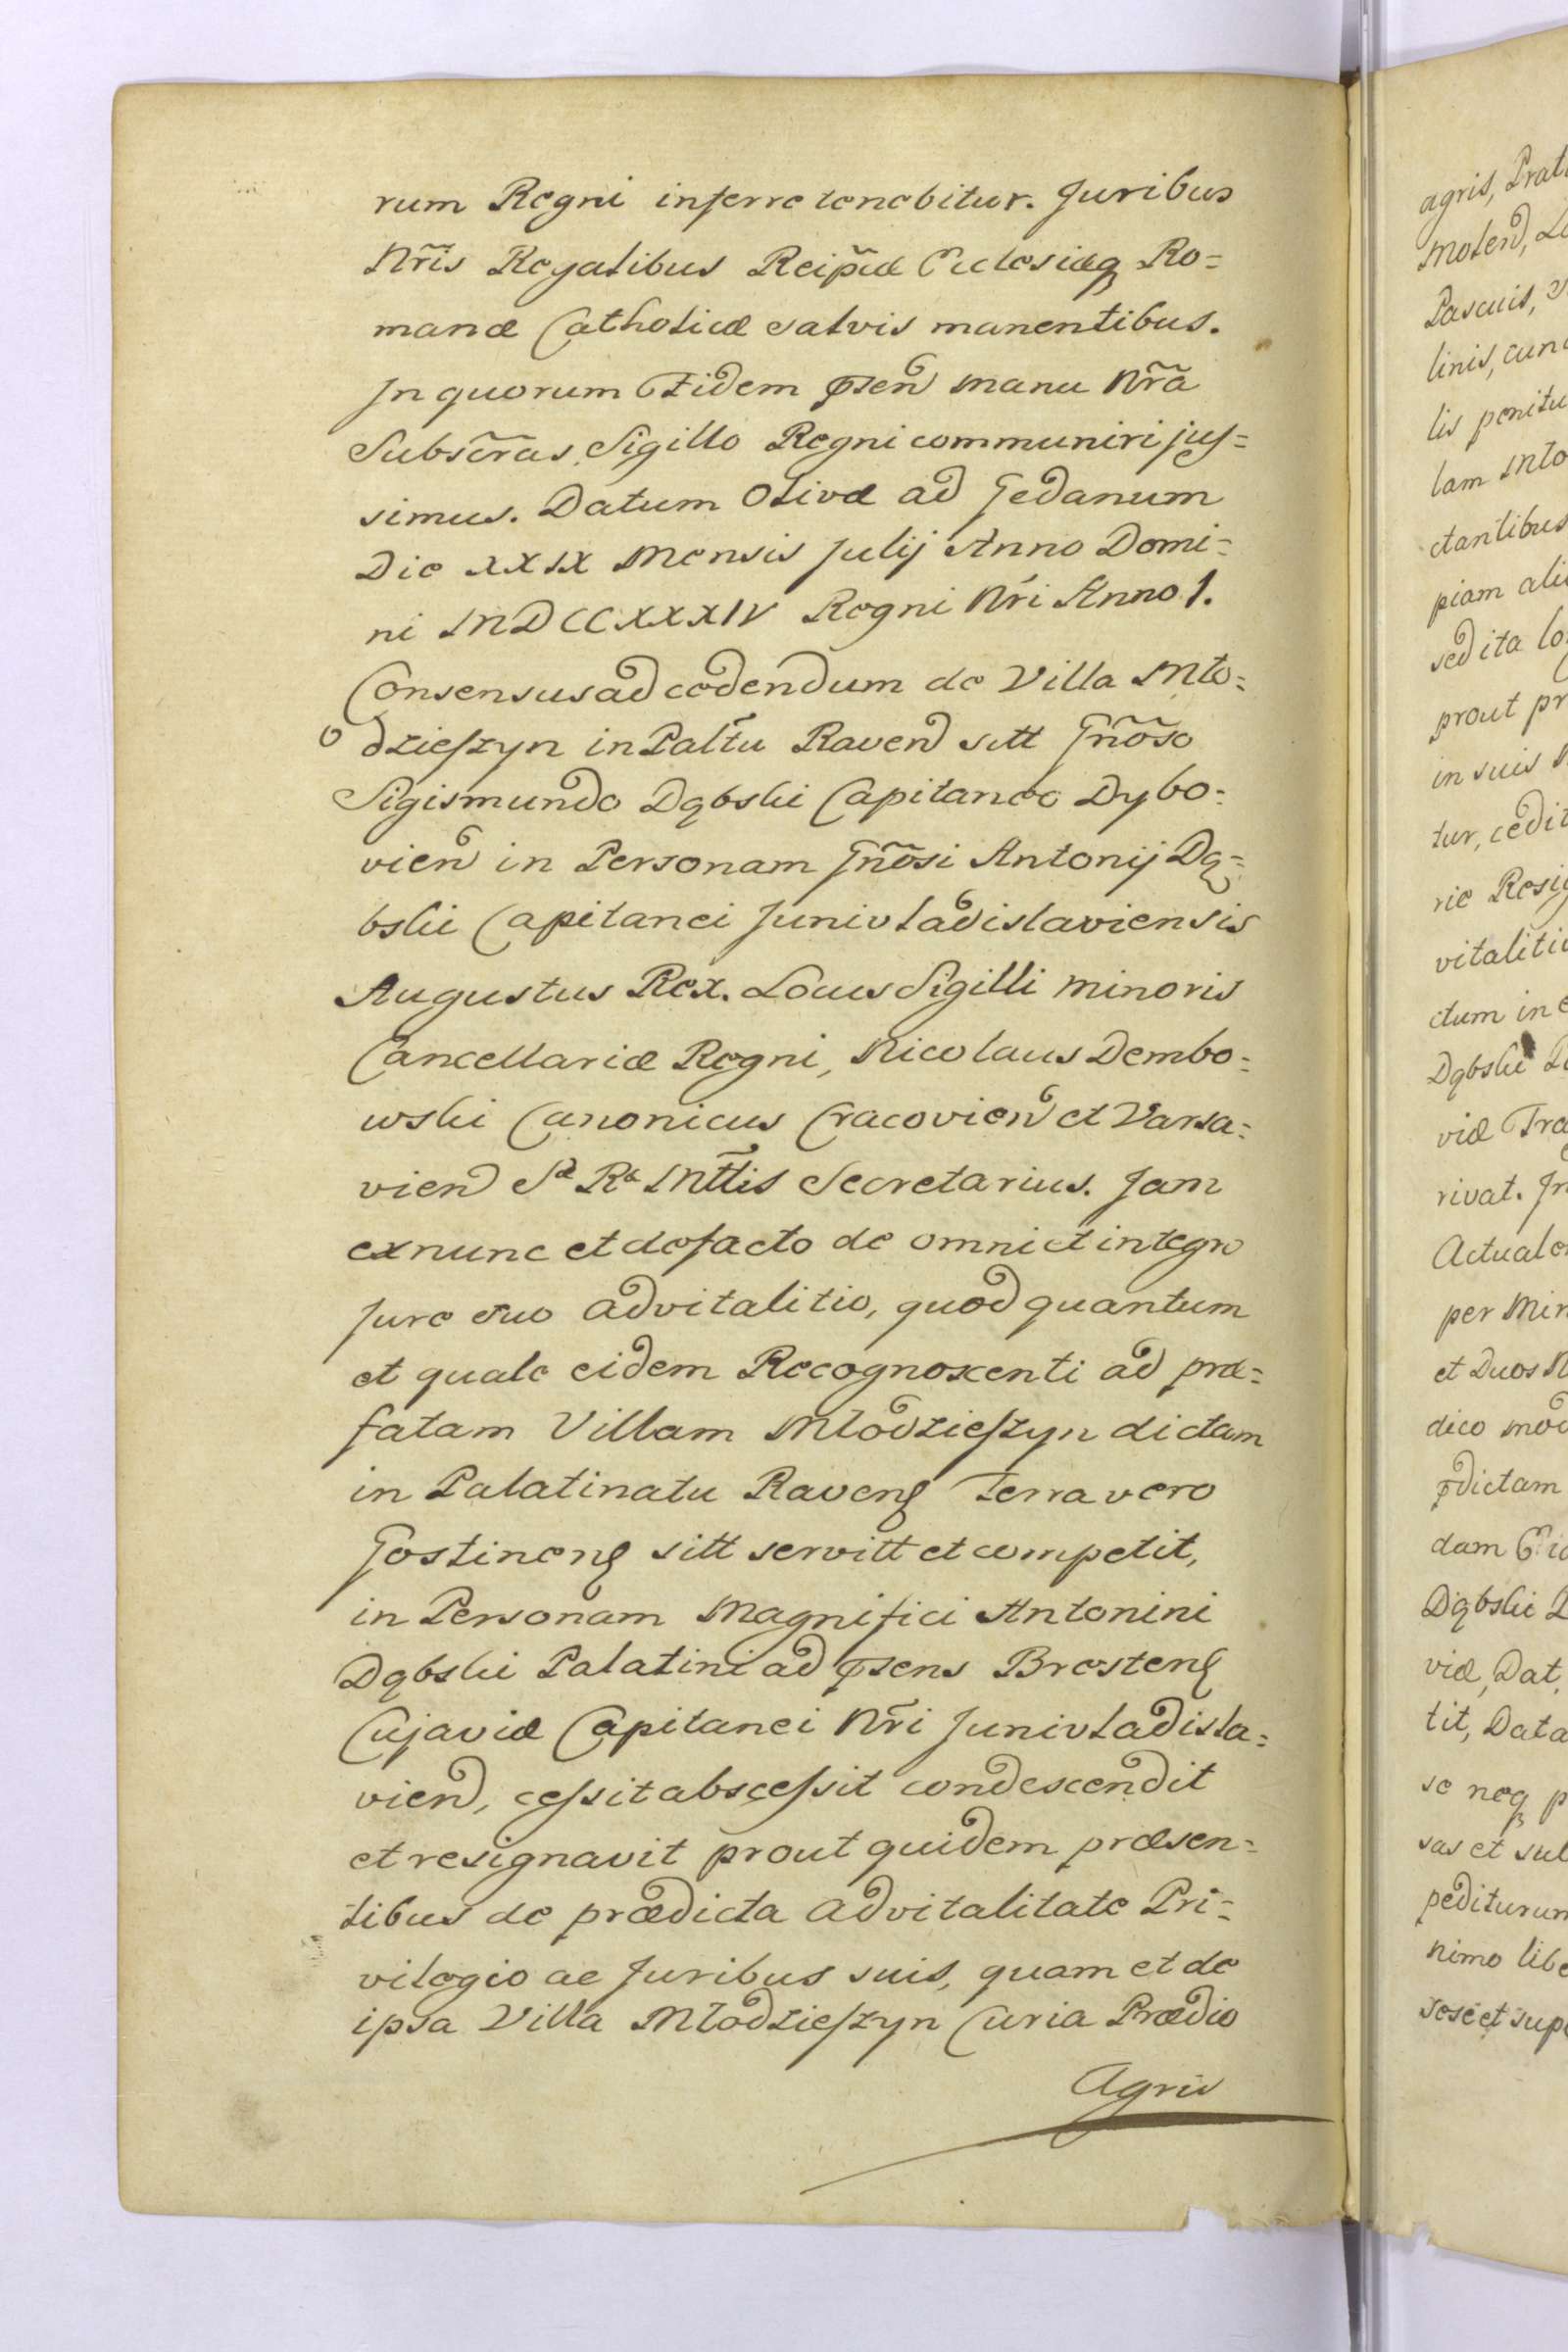 rum Regni inferre tenebitur. Juribus
Nr̃is Regalibus Reip̃æ Ecclesiæq Ro=
manæ Catholicæ salvis manentibus.
In quorum Fidem p̃sen manu Nr̃a
Subscr̃as, Sigillo Regni communiri jus=
simus. Datum Olivæ ad Gedanum
Die XXIX Mensis Julij Anno Domi=
ni MDCCXXXIV Regni Nr̃i Anno 1.
Consensus ad cedendum de Villa Mło=
dzieszyn in Palt̃u Raven sitt Gñoso
Sigismundo Dąbski Capitaneo Dybo=
vien in Personam Gñosi Antonij Dą=
bski Capitanei Junivladislaviensis
Augustus Rex. Locus Sigilli minoris
Cancellariæ Regni, Nicolaus Dembo=
wski Canonicus Cracovien et Varsa=
vien Sæ Ræ Mttis Secretarius. Jam
ex nunc et de facto de omni et integro
Jure suo advitalitio, quod quantum
et quale eidem Recognoscenti ad præ=
fatam Villam Młodzieszyn dictam
in Palatinatu Raven Terra vero
Gostinen sitt servitt et competit,
in Personam Magnifici Antonini
Dąbski Palatini ad p̃sens Bresten
Cujaviæ Capitanei Nr̃i Junivladisla=
vien, cessit abscessit condescendit
et resignavit prout quidem præsen=
tibus de prædicta advitalitate Pri=
vilegio ac Juribus suis, quam et de
ipsa Villa Młodzieszyn Curia Prædio
Agris
agris, Prat
Molen,
Pascuis,
linis, cun
lis penitu
lam Mło
ctantibus
piam ali
sed ita lo
prout pr
in suis
tur, cedit
rie Resig
vitaliti
ctum in
Dąbski
viæ Tra
rivat. In
Actuale
per Min
et Duos
dico mod
p̃dictam
dam
Dąbski
viæ, Dat,
tit, Data
se neq p
sas et sul
pediturum
nimo libe
sese et supe